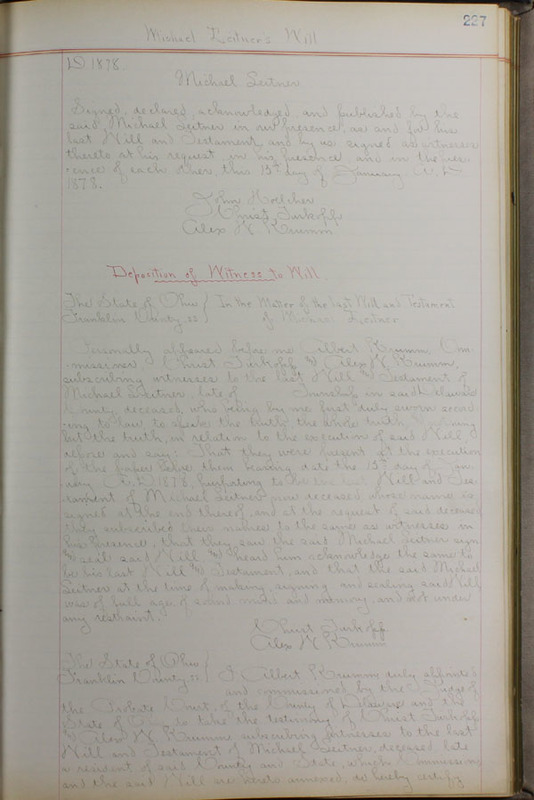 227
Michael Leitners Will
D 1878.
Michael Leitner
Signed, declared, acknowledged, and published by the
said Michael Leitner in our presence, as and for his
last Will and Testament, and by us signed as witnesses
thereto at his request in his presence and in the pres
ence of each other, this 13th day of January A.D.
1878.
John Hoelcher
Christ Turkopp
Alex W Krumm
Deposition of Witness to Will
The State of Ohio } In the Matter of the Last Will and Testament
Franklin County, ss } of Michael Leitner
Personally appeared before me Albert Krumm, Com
missioner Christ Turkopp & Alex W Krumm,
subscribing witnesses to the last Will & Testament of
Michael Leitner, late of Township in said Delaware
County, deceased, who being by me first duly sworn accord
ing to law to speak the truth, the whole truth & nothing
but the truth, in relation to the execution of said Will,
depose and say: That they were present at the execution
of the paper before them bearing date the 13th day of Jan
uary A.D. 1878, purporting to be the last Will and Tes
tament of Michael Leitner now deceased whose name is
signed at the end thereof, and at the request of said deceased
they subscribed their names to the same as witnesses in
his presence, that they saw the said Michael Leitner sign
and seal said Will and heard him acknowledge the same to
be his last Will and Testament, and that the said Michael
Leitner at the time of making, signing and sealing said Will
was of full age, of sound mind and memory, and not under
any restraint.
Christ Turkopp
Alex W Krumm
The State of Ohio }
Franklin County, ss } I, Albert Krumm, duly appointed
and commissioned by the Judge of
the Probate Court, of the County of Delaware and the
State of Ohio to take the testimony of Christ Turkopp
& Alex W Krumm subscribing witnesses to the last
Will and Testament of Michael Leitner, deceased, late
a resident of said County and State, which Commission
and the said Will are hereto annexed, do hereby certify